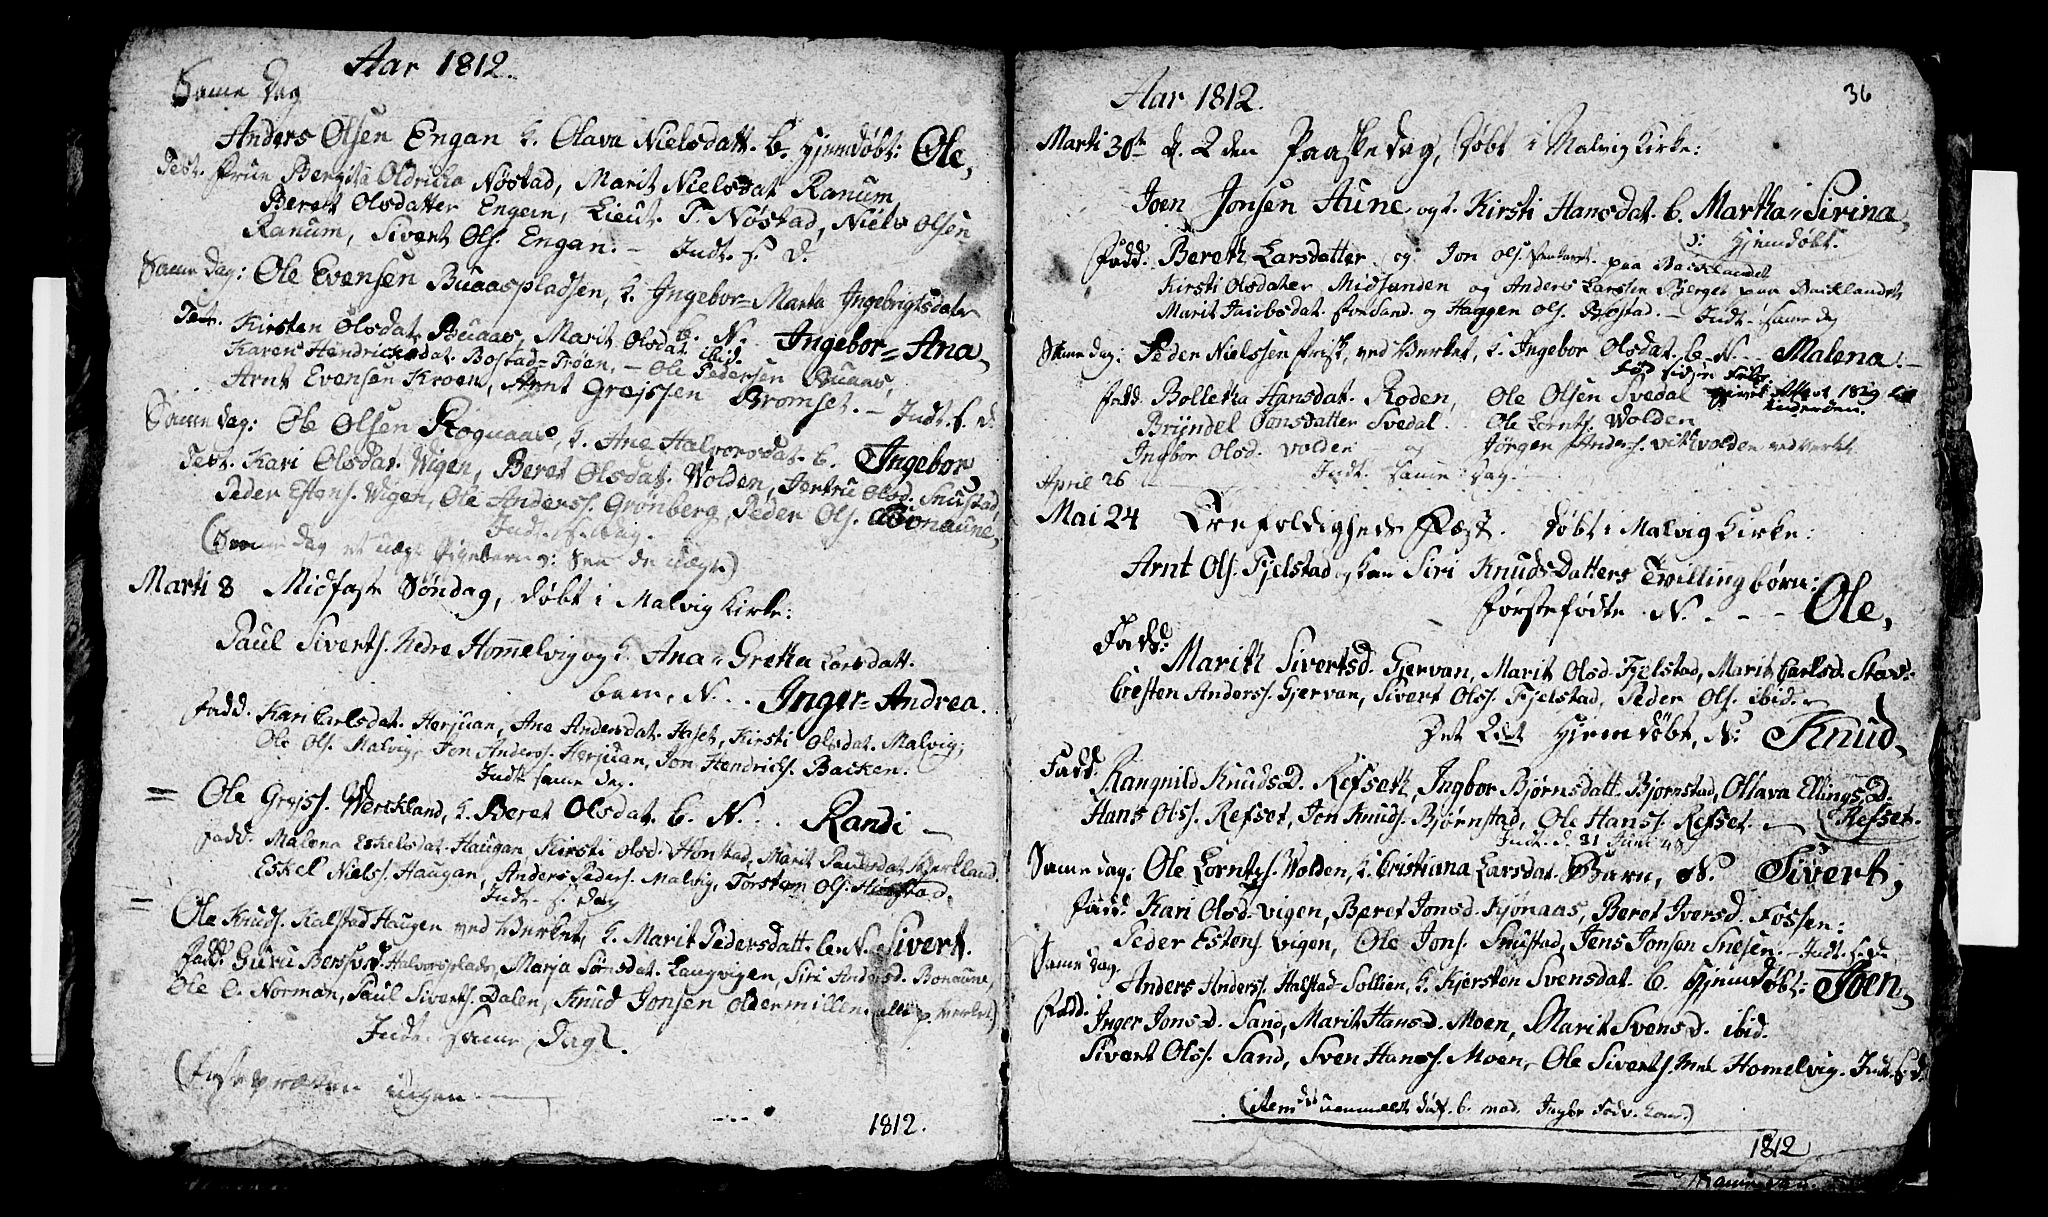 Aar 1812.
Same Dag
Anders Olsen Engan h. Olava Nielsdatt. b. hjemdøbt: Ole,
Test. Frue Bergita Oldricka Nøstad, Marit Nielsdat Ranum
Beret Olsdatter Engen, Lieut. T. Nøstad, Niels Olsen
Ranum, Sivert Ols. Engan. — Indt. s. d.
Same dag: Ole Evensen Buaaspladsen, h. Ingebor=Marta Ingebrigtsdatr
b. N. Ingebor=Ana,
Test. Kirsten Olsdat. Buaas, Marit Olsdat ibid.
Karen Hendricksdat. Bostad=Trøen, — Ole Pedersen Buaas,
Arnt Evensen Kroen, Arnt Grejssen Bromset. — Indt. s. d.
Same dag: Ole Olsen Rognaas, h. Ane Halvorsdat. b. Ingebor
Test. Kari Olsdat. Wigen, Beret Olsdat. Wolden, Jertru Olsd. Snustad,
Peder Estens. Wigen, Ole Anderss. Grønberg, Peder Ols. Bonaune,
Indt. s. dag.
(Same dag et uægt Pigebarn
Marti 8 Midfaste Søndag, døbt i Malvig Kirke:
Paul Siverts. Nedre Hommelvig og h. Ana=Gretha Larsdatt.
barn, N. . Inger=Andrea.
Fadd. Kari Carlsdat. Herjuan, Ane Andersdat. Haset, Kirsti Olsdat. Malvig,
Ole Ols. Malvig, Jon Anders. Herjuan, Jon Hendrichs. Backen.
Indt. same dag.
= Ole Grejss. Werckland, h. Beret Olsdat. b. N. . . Randi —
Fadd. Malena Eskelsdat. Haugan Kirsti Olsd. Honstad, Marit
Eskel Nielss. Haugan, Anders Peders. Malvig, Torsten Ols. Honstad.
Indt. s. dag
= Ole Knuds. Kalstad Haugen ved Werket, h. Marit Pedersdatt. b. N. Sivert.
Fadd. Guru Bersvsd. Halvorsplads, Marja Sørnsdat. Langvigen, Siri Andersd. Bonaune,
Ole O. Norman, Paul Siverts. Dalen, Knud Jonsen Oldermillen. alle p. Verket.)
Indt. same Dag.
ingen. —
1812.
36
Aar 1812.
Marti 30te d. 2den Paaskedag, døbt i Malvig Kirke:
Joen Jonsen Aune og h. Kirsti Hansdat. b. Martha=Sirina,
Hjemdøbt.
Fadd. Bereth Larsdatter og Jon Ols. paa Backlandet
Kirsti Olsdater Midsanden og Anders Larsen Bjerget paa Backlandet
Marit Jacobsdat. og Haagen Ols. Bostad. — Indt. same dag
Same dag: Peder Nielssen Frisk, ved Werket, h. Ingebor Olsdat. b. N. . . Malena. —
Fød
1829
Fadd. Bolletha Hansdat. Roden, Ole Olsen Svedal
Bryndel Jonsdatter Svedal. Ole Lornts. Wolden
Ingbor Olsd. volden og Jørgen Anders. ved verket
Indt. same dag.
April 26
Mai 24 Trefoldigheds Fæst. døbt i Malvig Kirke:
Arnt Ols. Fjelstad og hans Siri Knuds Datters Tvillingbørn:
førstefødte N. . - - Ole,
Fadd: Marith Sivertsd. Gjervan, Marit Olsd. Fjelstad, Marit Carlsd. Stav:
Cresten Anderss. Gjervan, Sivert Olss. Fjelstad, Peder Ols. ibid. —
Det 2det Hjemdøbt, N: Knud,
Fadd. Rangnild Knudsd. Refseth, Ingbor Bjørnsdatt. Bjørnstad, Ollava Ellingsd.
Hans Olss. Refset, Jon Knuds. Bjørnstad, Ole Hanss. Refset. — (Refset.
Indt. d. 21 Juni
Same dag: Ole Lornts. Wolden, h. Cristianna Larsdat. Barn, N. Sivert,
Fadd. Kari Olsd. Vigen, Beret Jonsd. Kjønaas, Beret Iversd. Fossen:
Peder Estens. Vigen, Ole Jons. Snustad, Jens Jonsen Snesen. — Indt. s. d.
Same dag.
Anders Anderss. Halstad=Sollien, h. Kjersten Svensdat. b. Hjemdøbt: Joen,
Fadd. Inger Jonsd. Sand, Marit Hansd. Moen, Marit Svensd. ibid.
Sivert Olss. Sand, Sven Hanss. Moen, Ole Siverts. Homelvig. Indt. s. d.
(item
1812